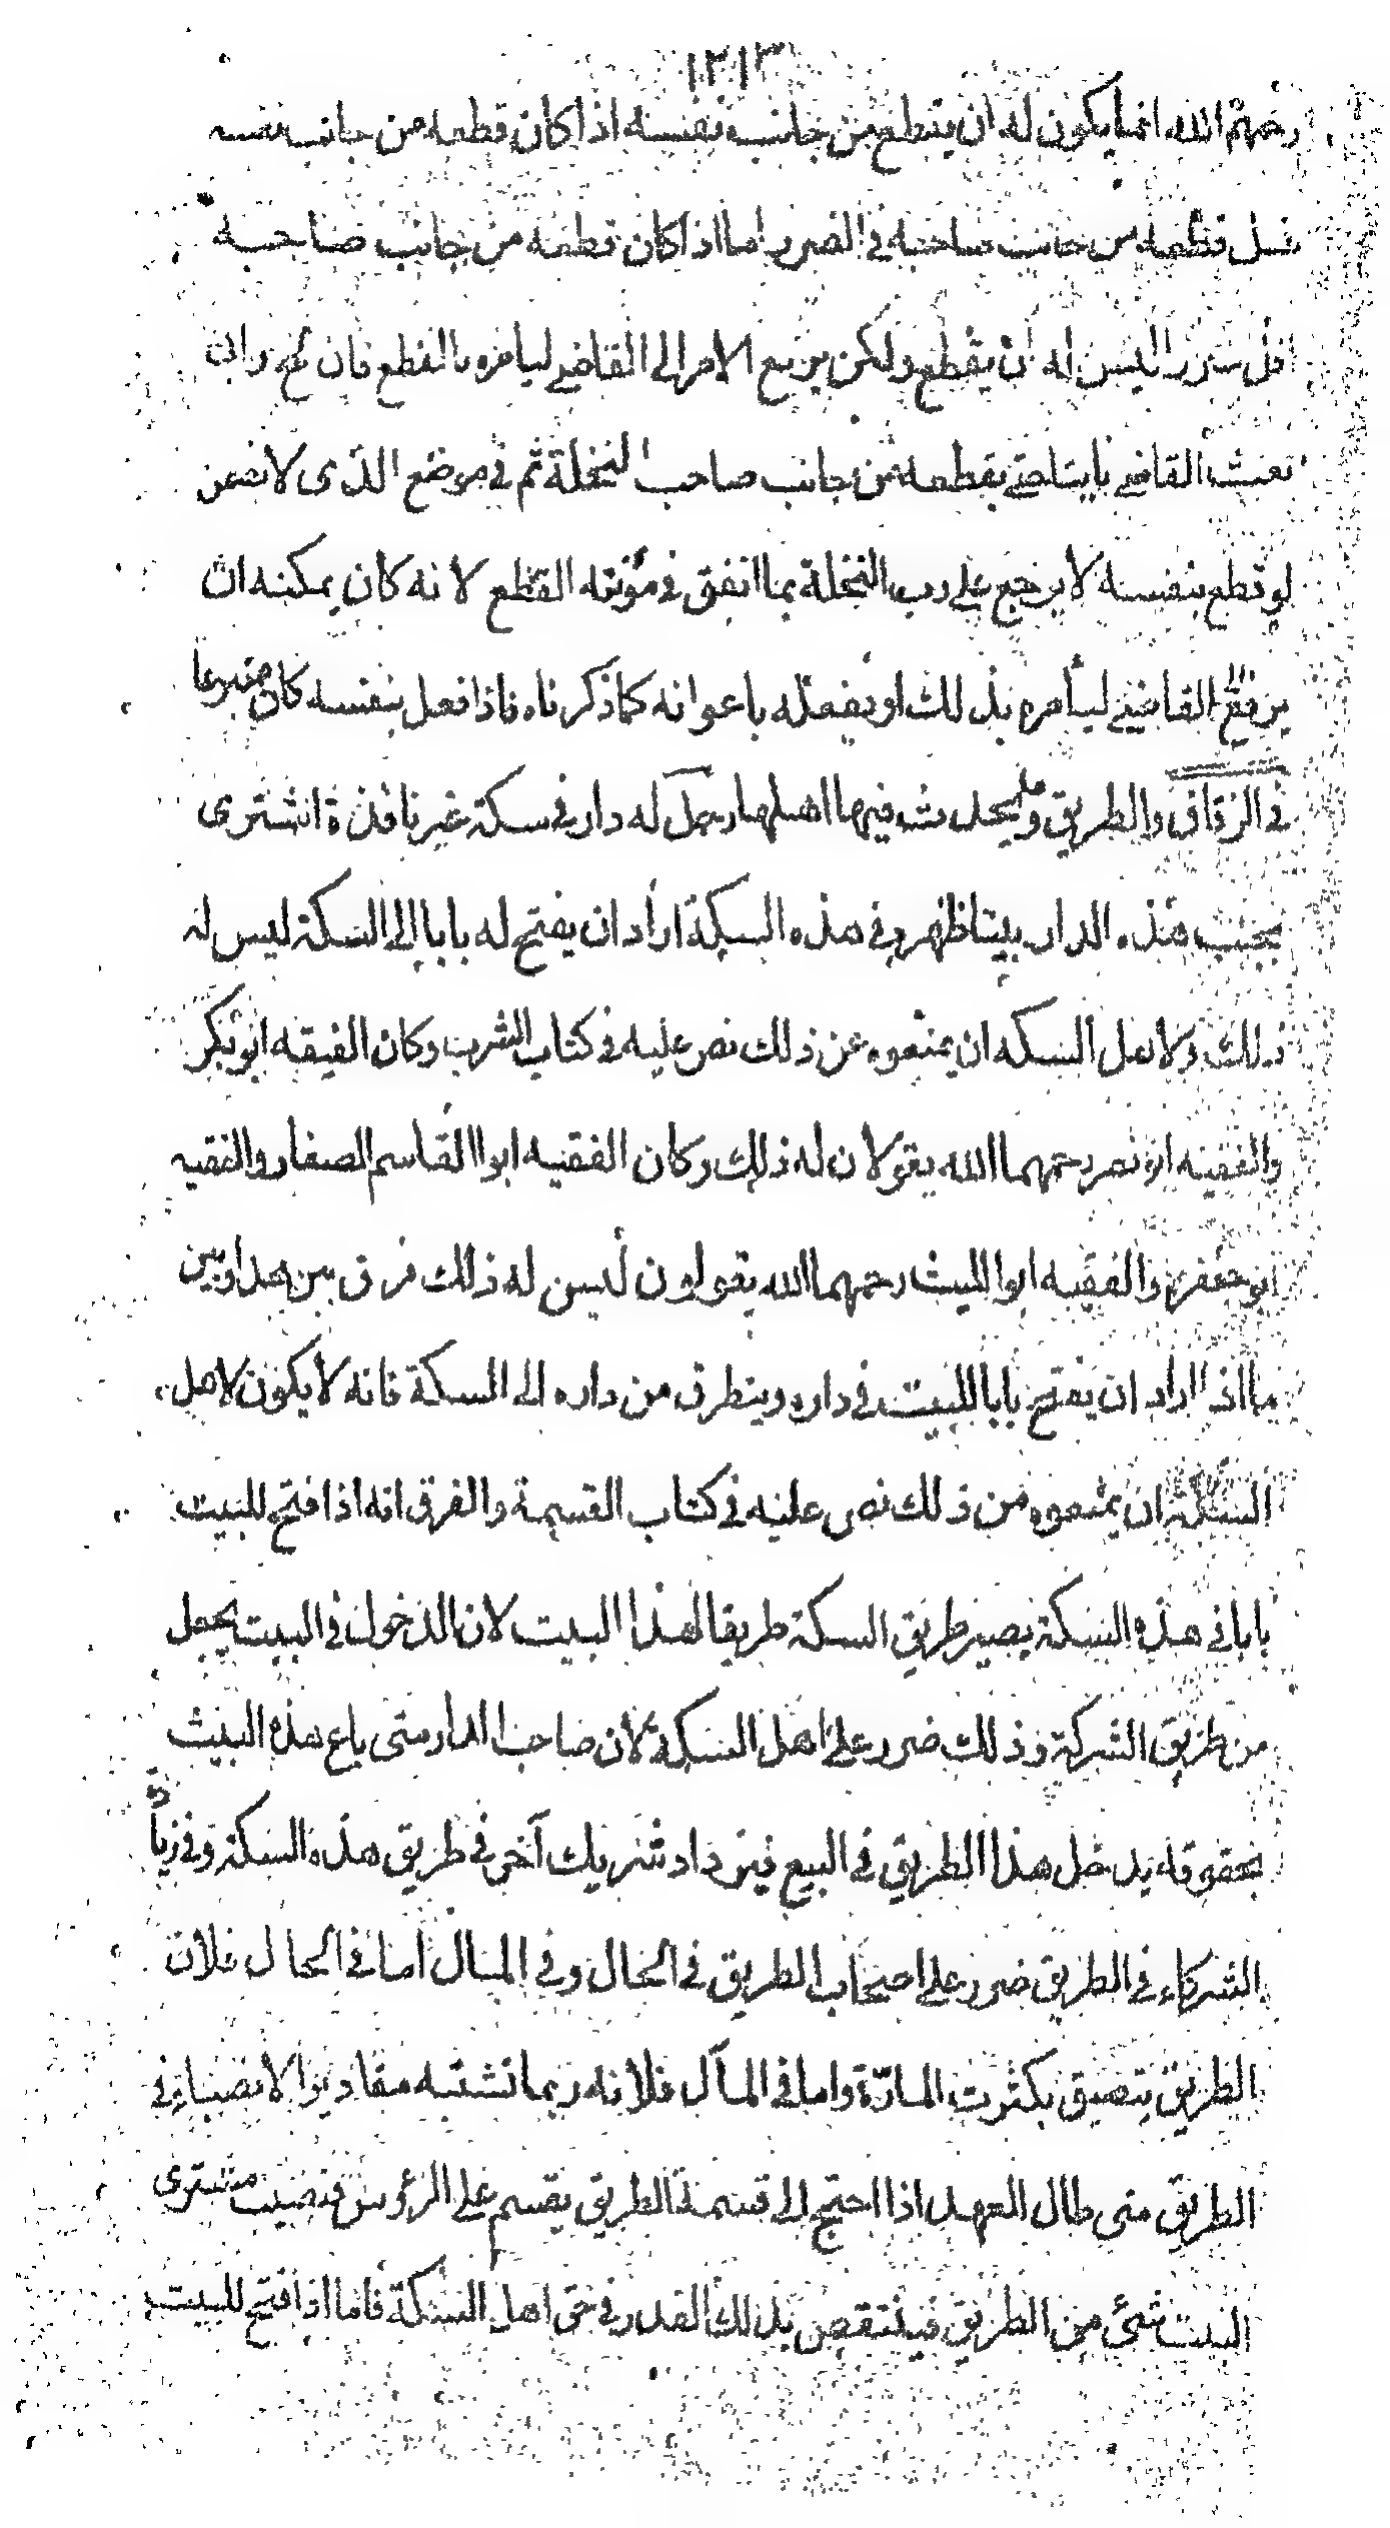 ١٢١٣
رحمهم الله انما يكون له ان يقطع من جانب نفسه اذا كان قطعه من جانب نفسه
مثل قطعه من جانب صاحبه في الضرر اما اذا كان قطعه من جانب صاحبه
اقل ضررا ليس له ان يقطع ولكن يرفع الامر الى القاضي ليامره بالقطع فان لج وابى
يعث القاضي بايتا حتى يقطعه من جانب صاحب النخلة ثم في موضع الذى لا يضمن
لو قطع بنفسه لا يرجع على رب النخلة بما انفق في مؤنته القطع لانه كان يمكنه ان
يرفع الى القاضي ليأمره بذلك او يفعله باعوانه كما ذكرناه فاذا فعل بنفسه كان متبرعا
في الزقاق والطريق وما يحدث فيها اهلها رجل له دار في سكة غير نافذة اشترى
بجنب هذه الدار بيتا ظهره في هذه السكة اراد ان يفتح له بابا الى السكة ليس له
ذلك ولاهل السكه ان يمنعوه عن ذلك نص عليه في كتاب الشرب وكان الفيقه ابو بكر
والفقيه ابو نصر رحمهما الله يقولان له ذلك وكان الفقيه ابوا القاسم الصفار والفقيه
ابو جعفر والفقيه ابو الليث رحمهما الله يقولون ليس له ذلك فرق بين هذا وبين
ما اذا اراد ان يفتح بابا للبيت في داره ويتطرق من داره الى السكة فانه لا يكون لاهل
السكة ان يمنعوه من ذلك نص عليه في كتاب القسمة والفرق انه اذا فتح للبيت
بابا في هذه السكة يصير طريق السكة طريقا لهذا البيت لان الدخول في البيت يجعل
من طريق الشركة وذلك ضرر على اهل السكة لان صاحب الدار متى باع هذه البيت
بحقوقه يدخل هذا الطريق في البيع فيزداد شريك آخر في طريق هذه السكة وفي زيادة
الشركاء في الطريق ضرر على اصحاب الطريق في الحال وفي المال اما في الحال فلان
الطريق يتضيق بكثرت المارّة واما في المآل فلانه ربما تشتبه مقادير الانصباء في
الطريق متى طال العهد اذا احتج الى قسمة الطريق يقسم على الرؤس فنصيب مشترى
البيت شئ من الطريق فينتقص بذلك القدر في حق اهل السكة فاما اذا فتح للبيت